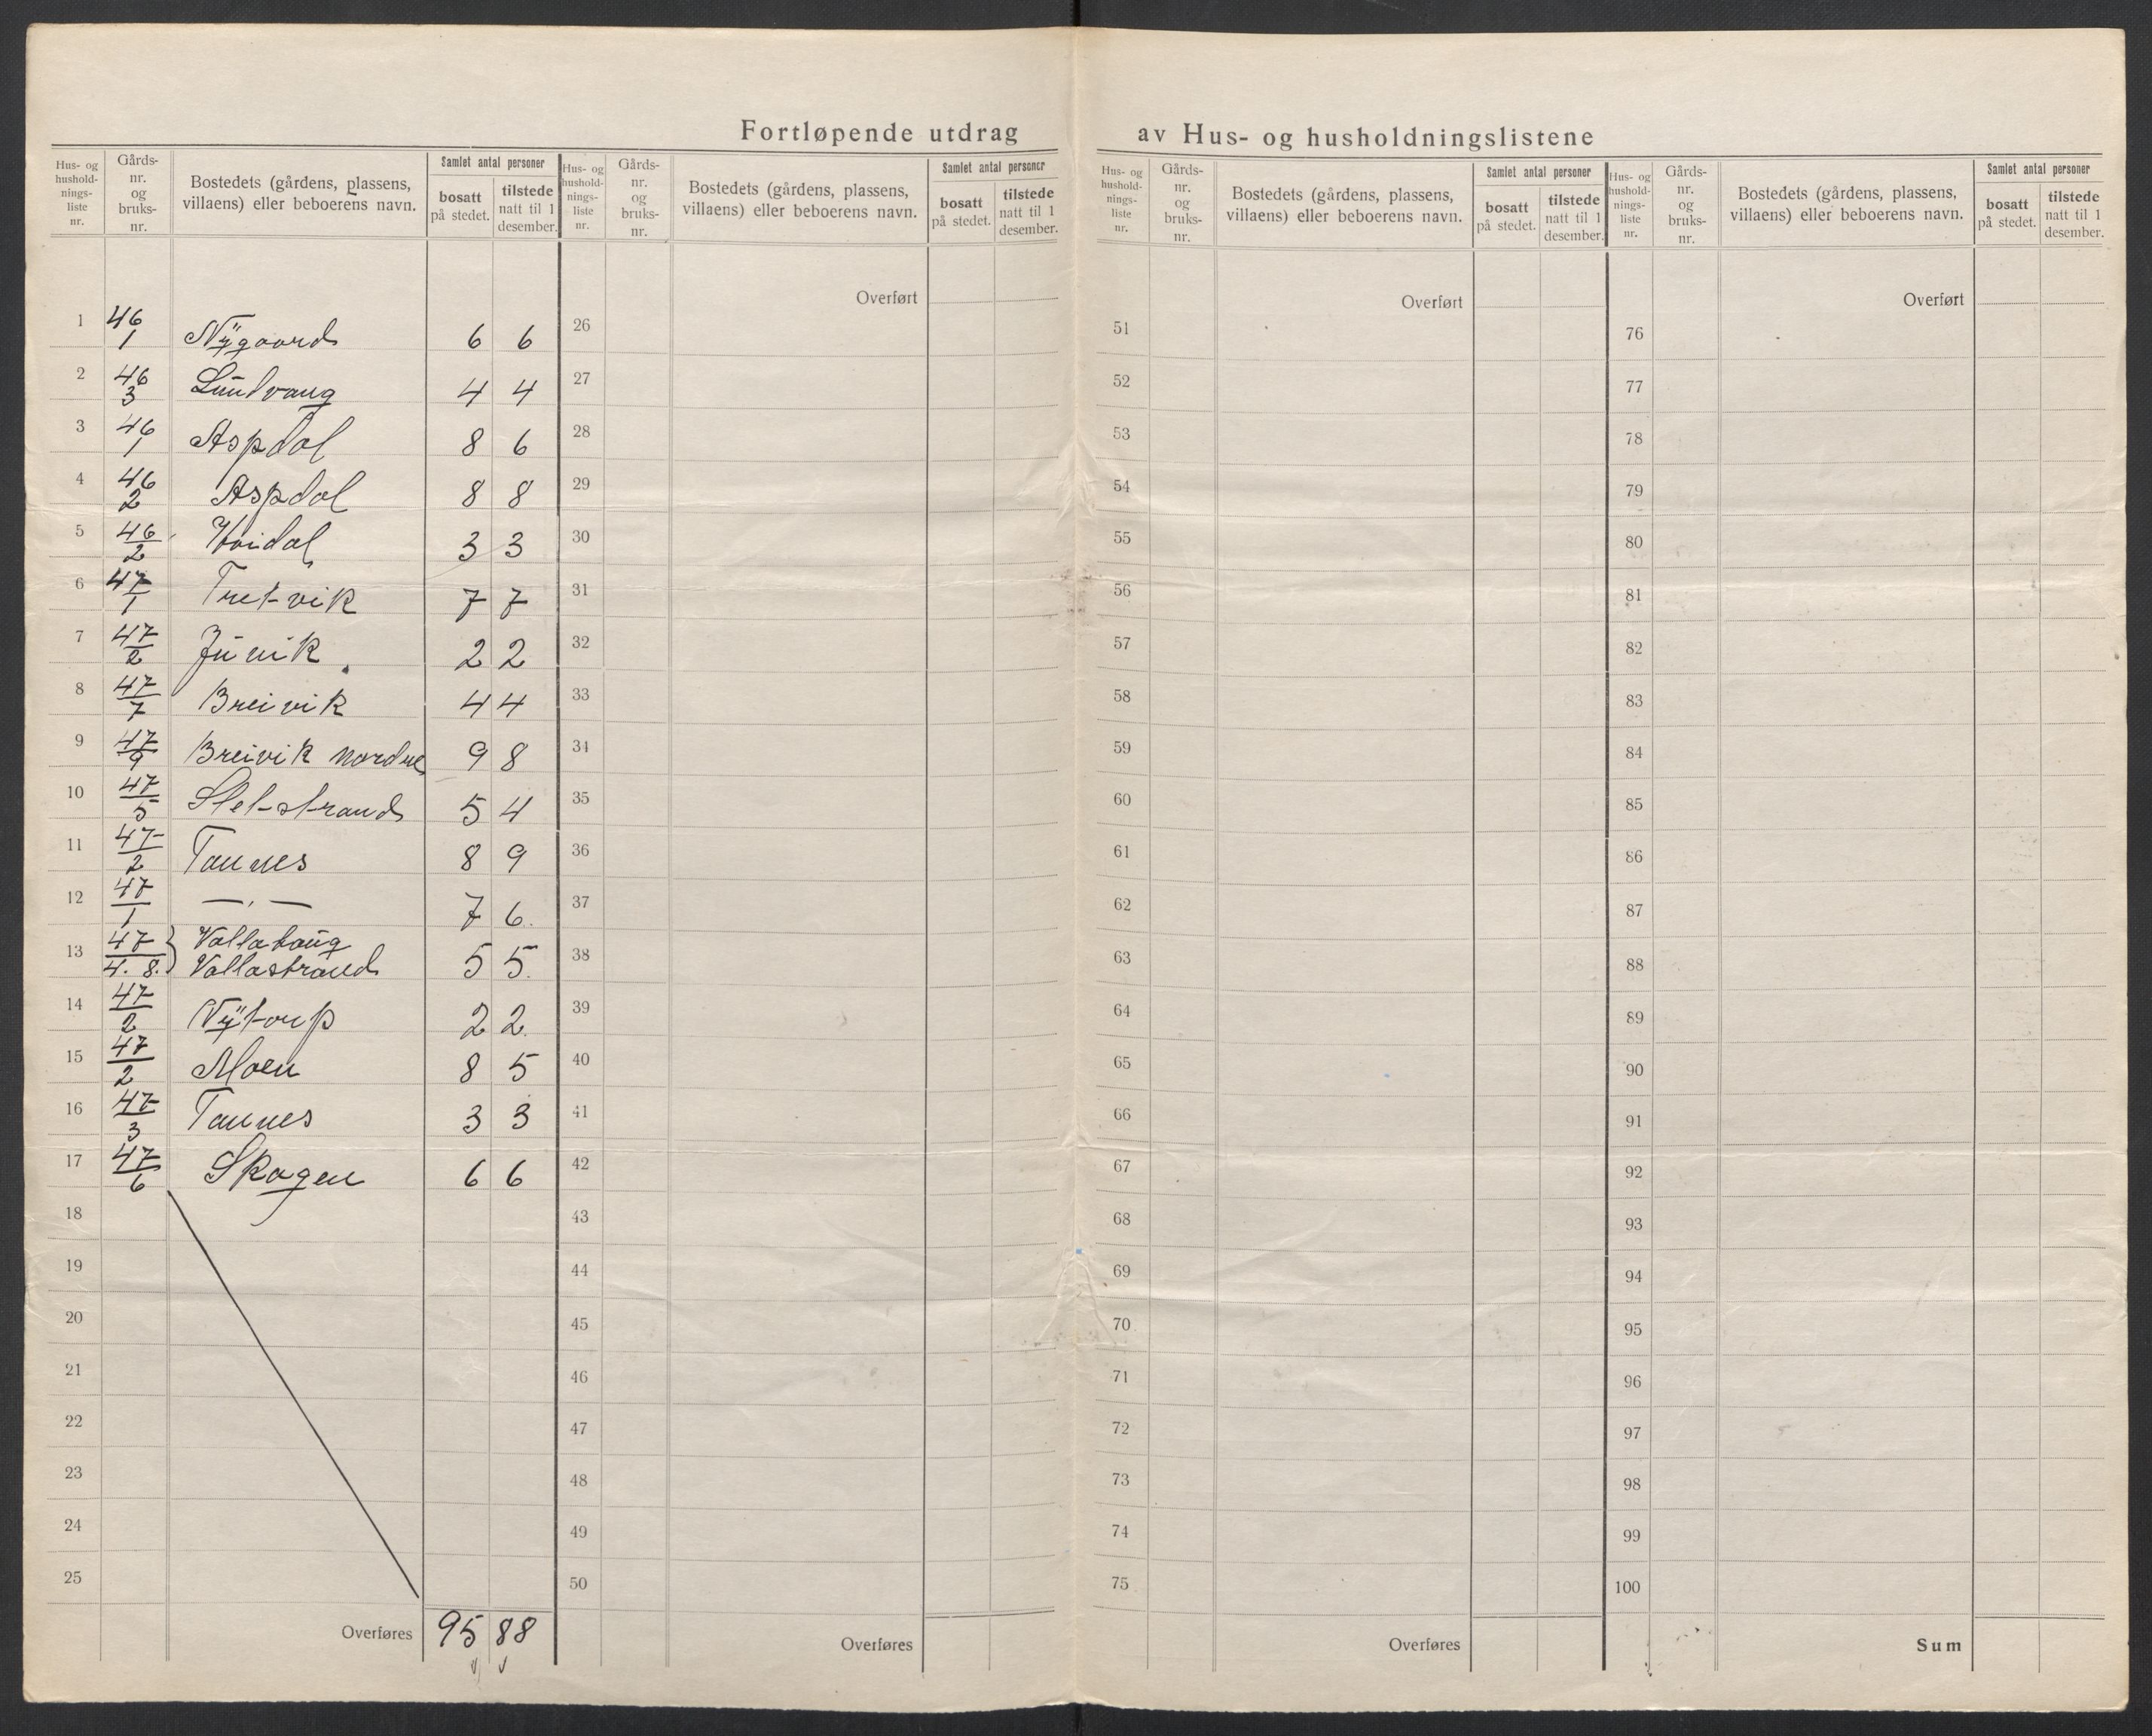 Fortløpende utdrag av Hus- og husholdningslistene
Hus- og hushold-nings-liste nr. | Gårds-nr. og bruks-nr. | Bostedets (gårdens, plassens, villaens) eller beboerens navn. | Samlet antal personer | bosatt på stedet. | tilstede natt til 1 desember.
Hus- og hushold-nings-liste nr. | Gårds-nr. og bruks-nr. | Bostedets (gårdens, plassens, villaens) eller beboerens navn. | Samlet antal personer | bosatt på stedet. | tilstede natt til 1 desember.
Hus- og hushold-nings-liste nr. | Gårds-nr. og bruks-nr. | Bostedets (gårdens, plassens, villaens) eller beboerens navn. | Samlet antal personer | bosatt på stedet. | tilstede natt til 1 desember.
Hus- og hushold-nings-liste nr. | Gårds-nr. og bruks-nr. | Bostedets (gårdens, plassens, villaens) eller beboerens navn. | Samlet antal personer | bosatt på stedet. | tilstede natt til 1 desember.
Overført Overført Overført
1 46/1 Nÿgaard 6 6 26 51 76
2 46/3 Lundvang 4 4 27 52 77
3 46/1 Aspdal 8 6 28 53 78
4 46/2 Aspdal 8 8 29 54 79
5 46/2 3 3 30 55 80
6 47/1 Tretvik 7 7 31 56 81
7 47/2 Juvik. 2 2 32 57 82
8 47/7 Breivik 4 4 33 58 83
9 47/9 Breivik nordre 9 8 34 59 84
10 47/5 Sletstrand 5 4 35 60 85
11 47/2 Tannes 8 9 36 61 86
12 47/1 — , — 7 6. 37 62 87
13 47/4. 8. } Vallahaug
Vallastrand 5 5. 38 63 88
14 47/2 Nÿtorp 2 2. 39 64 89
15 47/2 Moen 8 5 40 65 90
16 47/3 Tannes 3 3 41 66 91
17 47/6 Skogen 6 6 42 67 92
18 43 68 93
19 44 69 94
20 45 70 95
21 46 71 96
22 47 72 97
23 48 73 98
24 49 74 99
25 50 75 100
Overføres 95 88 Overføres Overføres Sum